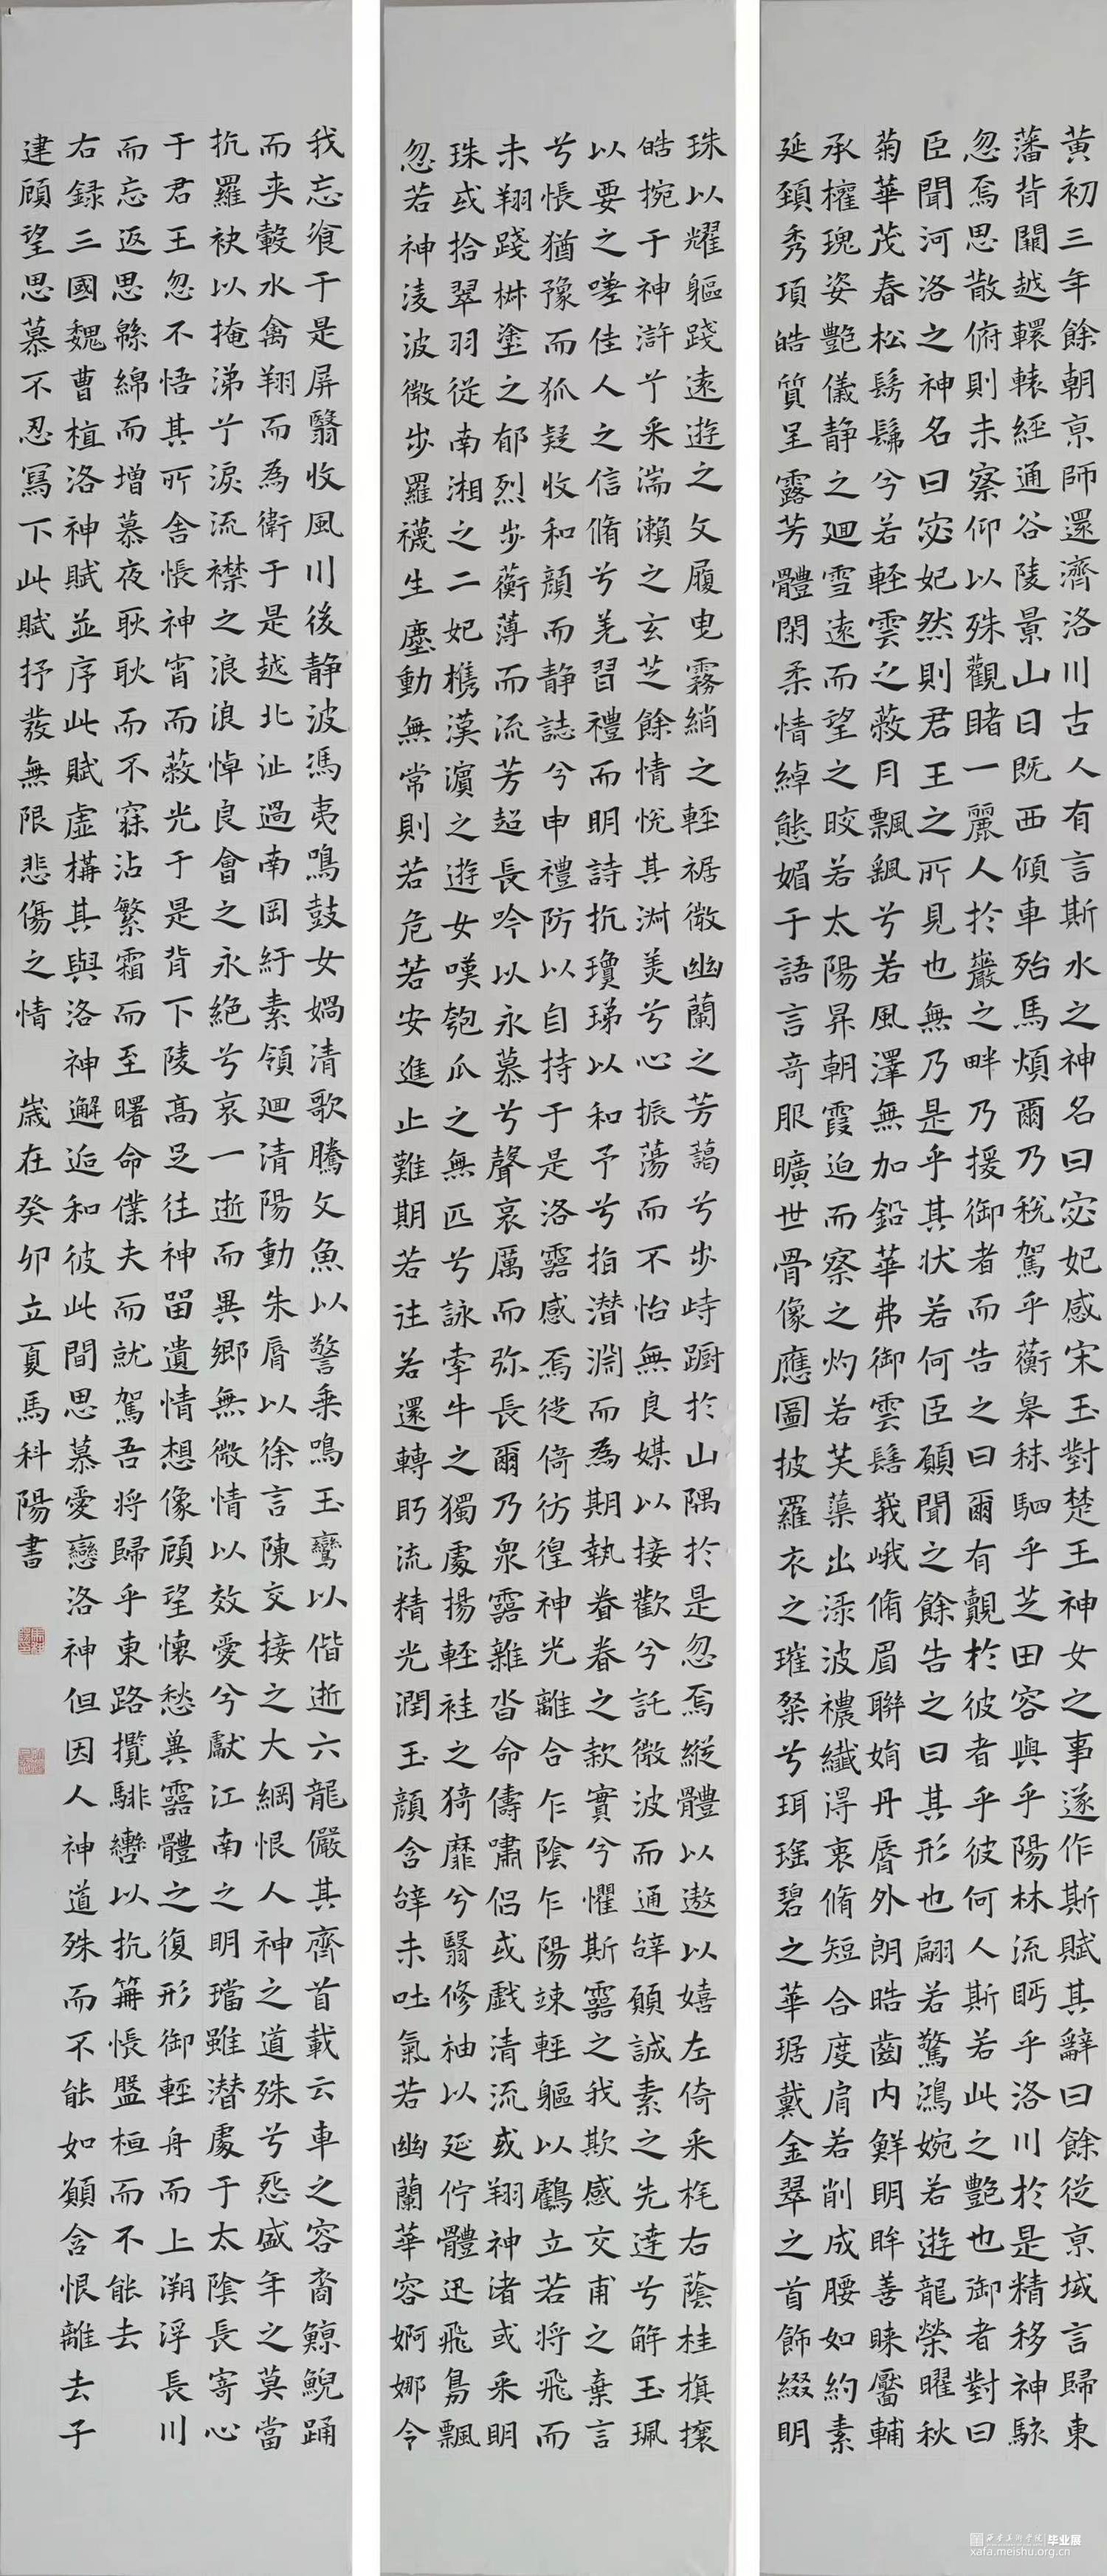 黄初三年餘朝京師還濟洛川古人有言斯水之神名曰宓妃感宋玉對楚王神女之事遂作斯賦其辭曰餘從京域言歸東
藩背闕越轘轅經通谷陵景山日既西傾車殆馬煩爾乃税駕乎蘅皋秣駟乎芝田容與乎陽林流眄乎洛川於是精移神駭
忽焉思散俯則未察仰以殊觀睹一麗人於巖之畔乃援御者而告之曰爾有覿於彼者乎彼何人斯若此之艷也御者對曰
臣聞河洛之神名曰宓妃然則君王之所見也無乃是乎其狀若何臣願聞之餘告之曰其形也翩若驚鴻婉若遊龍榮曜秋
菊華茂春松髣髴兮若輕雲之蔽月飄颻兮若風澤無加鉛華弗御雲髻峩峨脩眉聯娟丹脣外朗皓齒内鮮明眸善睞靨輔
承權瑰姿艷儀静之廻雪遠而望之皎若太陽昇朝霞迫而察之灼若芙蕖出渌波襛纖得衷脩短合度肩若削成腰如約素
延頚秀項皓質呈露芳體閑柔情綽態媚于語言奇服曠世骨像應圖披羅衣之璀粲兮珥瑤碧之華琚戴金翠之首飾綴明
珠以耀軀踐遠遊之文履曳霧綃之輕裾微幽蘭之芳藹兮步踟躕於山隅於是忽焉縱體以遨以嬉左倚采旄右蔭桂旗攘
皓捥于神滸兮采湍瀨之玄芝餘情悅其淑美兮心振蕩而不怡無良媒以接歡兮託微波而通辭願誠素之先達兮解玉珮
以要之嗟佳人之信脩兮羌習禮而明詩抗瓊珶以和予兮指潛淵而為期執眷眷之款實兮懼斯靈之我欺感交甫之棄言
兮悵猶豫而狐疑收和顏而静誌兮申禮防以自持于是洛靈感焉徙倚彷徨神光離合乍陰乍陽竦輕軀以鶴立若将飛而
未翔踐椒塗之郁烈步蘅薄而流芳超長吟以永慕兮聲哀厲而弥長爾乃衆靈雜沓命儔嘯侶或戲清流或翔神渚或采明
珠或拾翠羽從南湘之二妃攜漢濱之遊女嘆匏瓜之無匹兮詠牽牛之獨處揚輕袿之猗靡兮翳修袖以延佇體迅飛鳧飄
忽若神淩波微步羅襪生塵動無常則若危若安進止難期若往若還轉眄流精光潤玉顏含辭未吐氣若幽蘭華容婀娜令
我忘飡于是屏翳收風川後静波馮夷鳴鼓女媧清歌騰文魚以警乘鳴玉鸞以偕逝六龍儼其齊首載云車之容裔鯨鯢踊
而夾轂水禽翔而為衛于是越北沚過南岡紆素領廻清陽動朱脣以徐言陳交接之大綱恨人神之道殊兮怨盛年之莫當
抗羅袂以掩涕兮淚流襟之浪浪悼良會之永絕兮哀一逝而異鄉無微情以效愛兮獻江南之明璫雖潛處于太陰長寄心
于君王忽不悟其所舍悵神宵而蔽光于是背下陵高足往神留遺情想像顧望懷愁冀靈體之復形御輕舟而上溯浮長川
而忘返思緜綿而增慕夜耿耿而不寐沾繁霜而至曙命僕夫而就駕吾将歸乎東路攬騑轡以抗策悵盤桓而不能去
右録三國魏曹植洛神賦並序此賦虛構其與洛神邂逅和彼此間思慕愛戀洛神但因人神道殊而不能如願含恨離去子
建顧望思慕不忍寫下此賦抒發無限悲傷之情 歲在癸卯立夏馬科陽書
西安美术学院 毕业展
xafa.meishu.org.cn